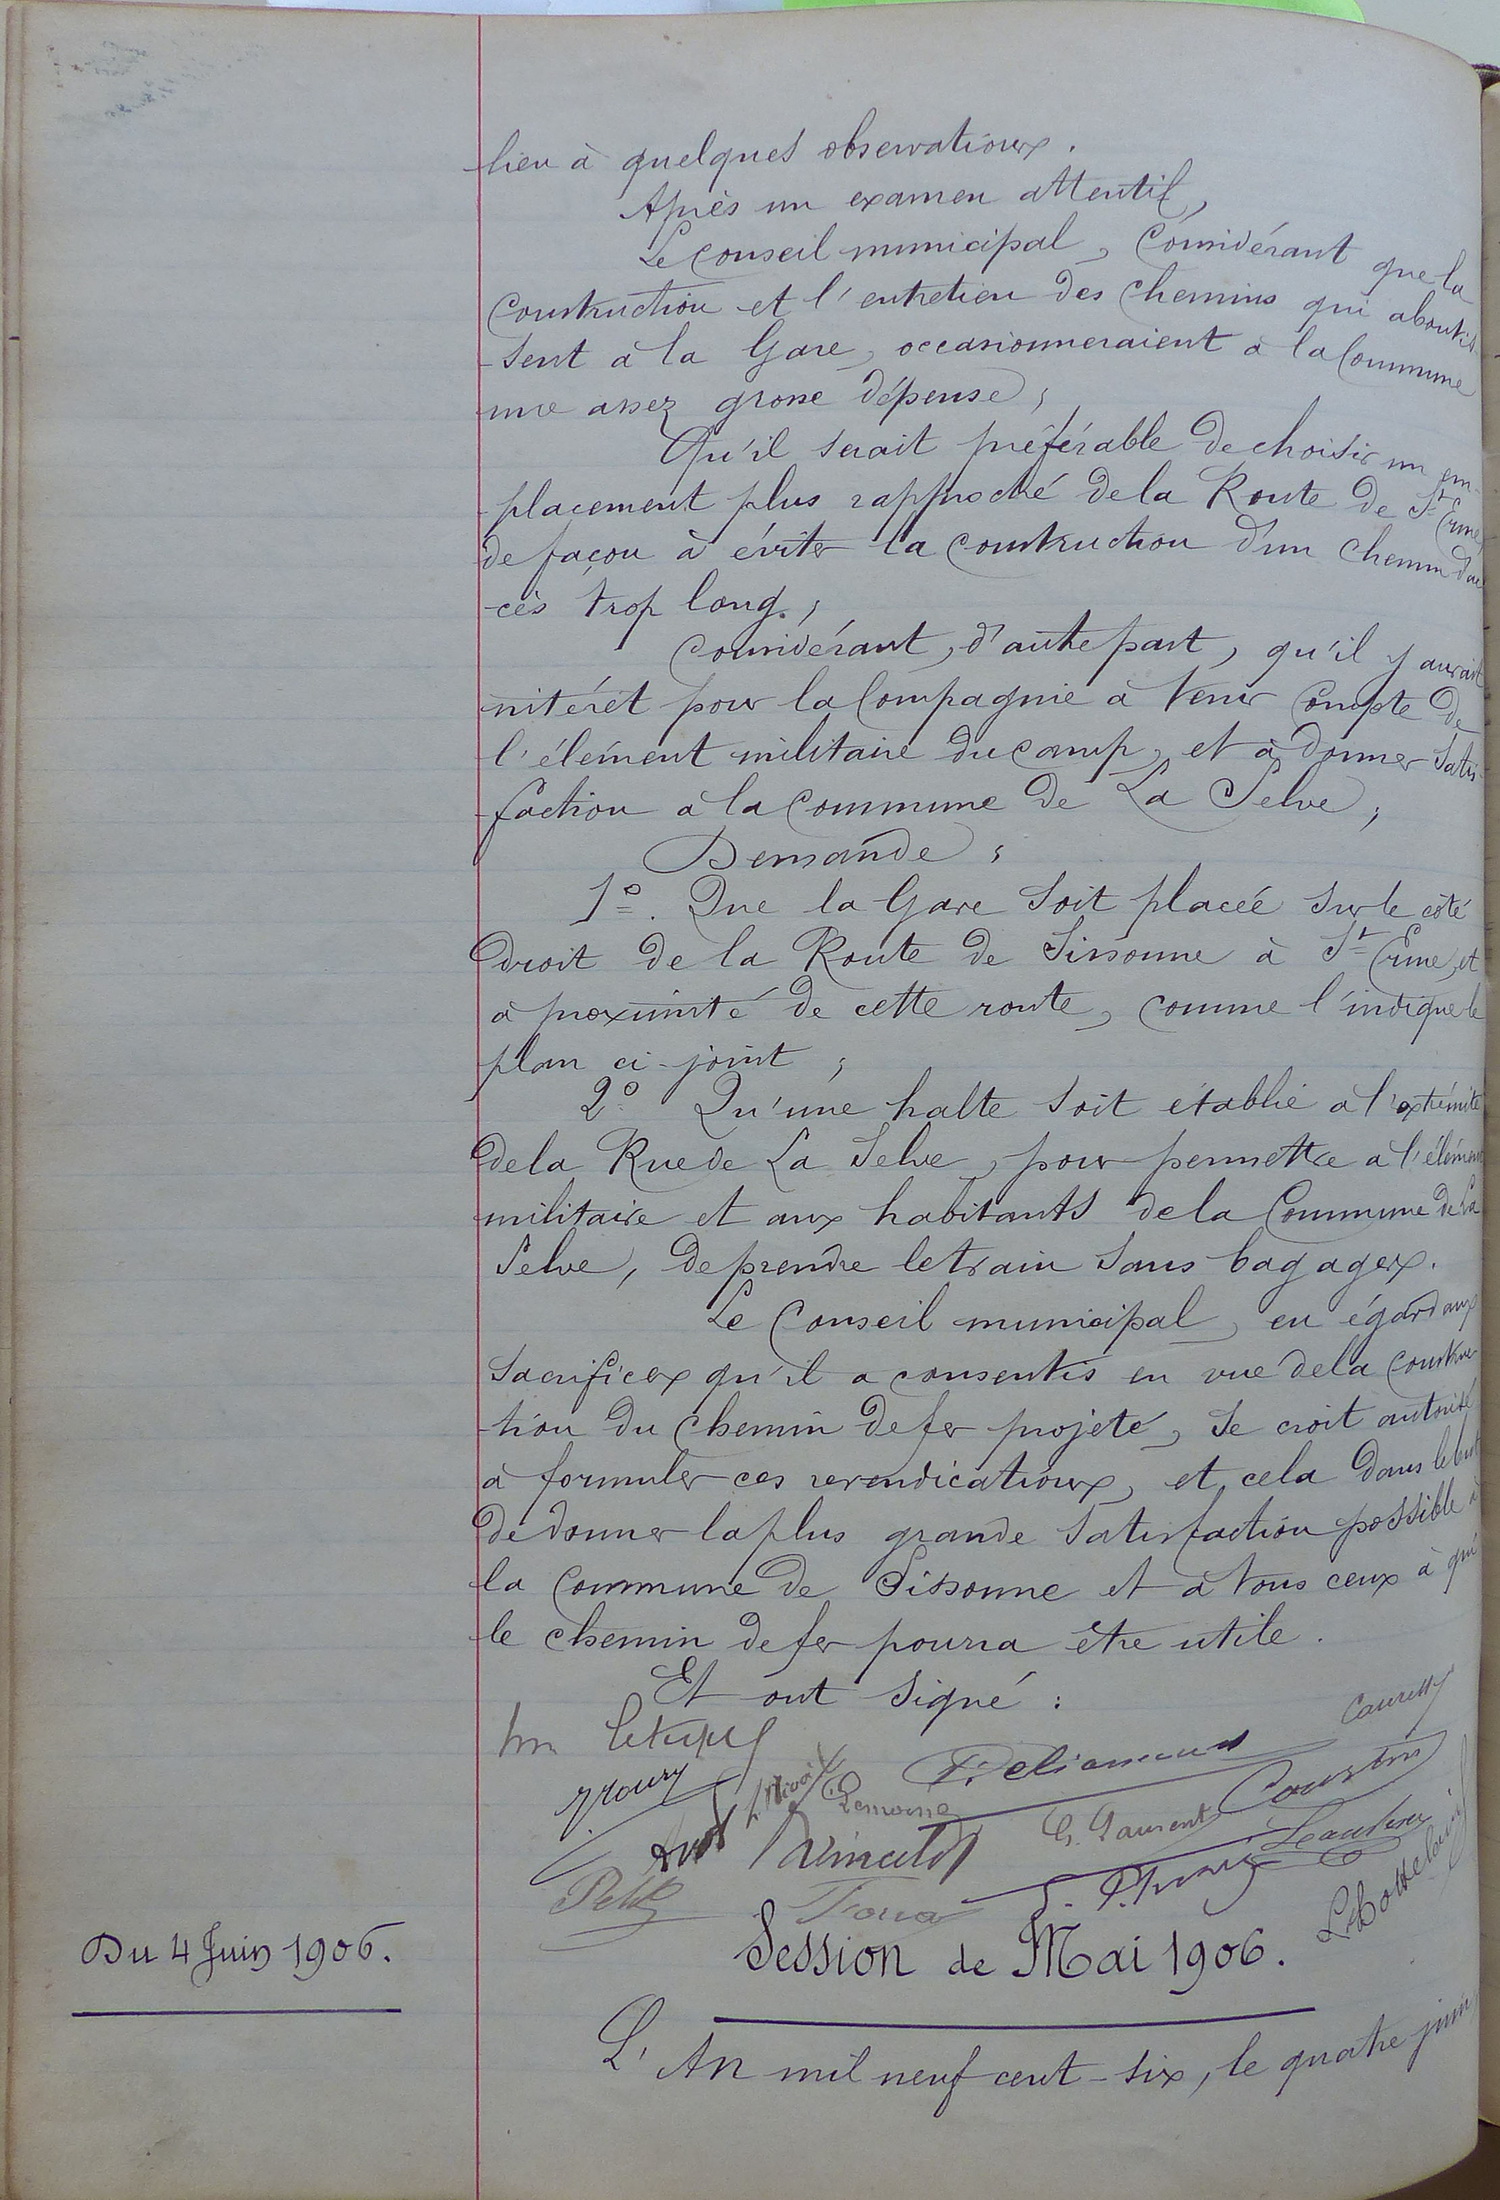 lieu à quelques observations.
Après un examen attentif,
Le Conseil municipal, Considérant que la
Construction et l'entretien des Chemins qui aboutis-
sent à la Gare, occasionneraient à la Commune
une assez grosse dépense;
Qu'il serait préférable de choisir un em-
placement plus rapproché de la Route de St Erme,
de façon à éviter la construction d'un chemin d'ac
-cès trop long;
Considérant, d'autre part, qu'il y aurait
intérêt pour la Compagnie à tenir Compte de
l'élément militaire du camp, et à donner Satis-
faction à la Commune de La Selve;
Demande:
1º. Que la Gare soit placée sur le côté
droit de la Route de Sissonne à St Erme, et
à proximité de cette route, comme l'indique le
plan ci-joint;
2º. Qu'une halte soit établie à l'extrémité
de la Rue de La Selve, pour permettre à l'élément
militaire et aux habitants de la Commune de La
Selve, de prendre le train sans bagages.
Le Conseil municipal, eu égard aux
Sacrifices qu'il a consentis en vue de la Construc-
-tion du Chemin de fer projeté, se croit autorisé
à formuler ces revendications, et cela dans le but
de donner la plus grande satisfaction possible à
la Commune de Sissonne et à tous ceux à qui
le chemin de fer pourra être utile.
Et ont signé:
Lemoine
G. Laurent
Petit
Session de Mai 1906.
Du 4 Juin 1906.
L'An mil neuf cent-six, le quatre juin